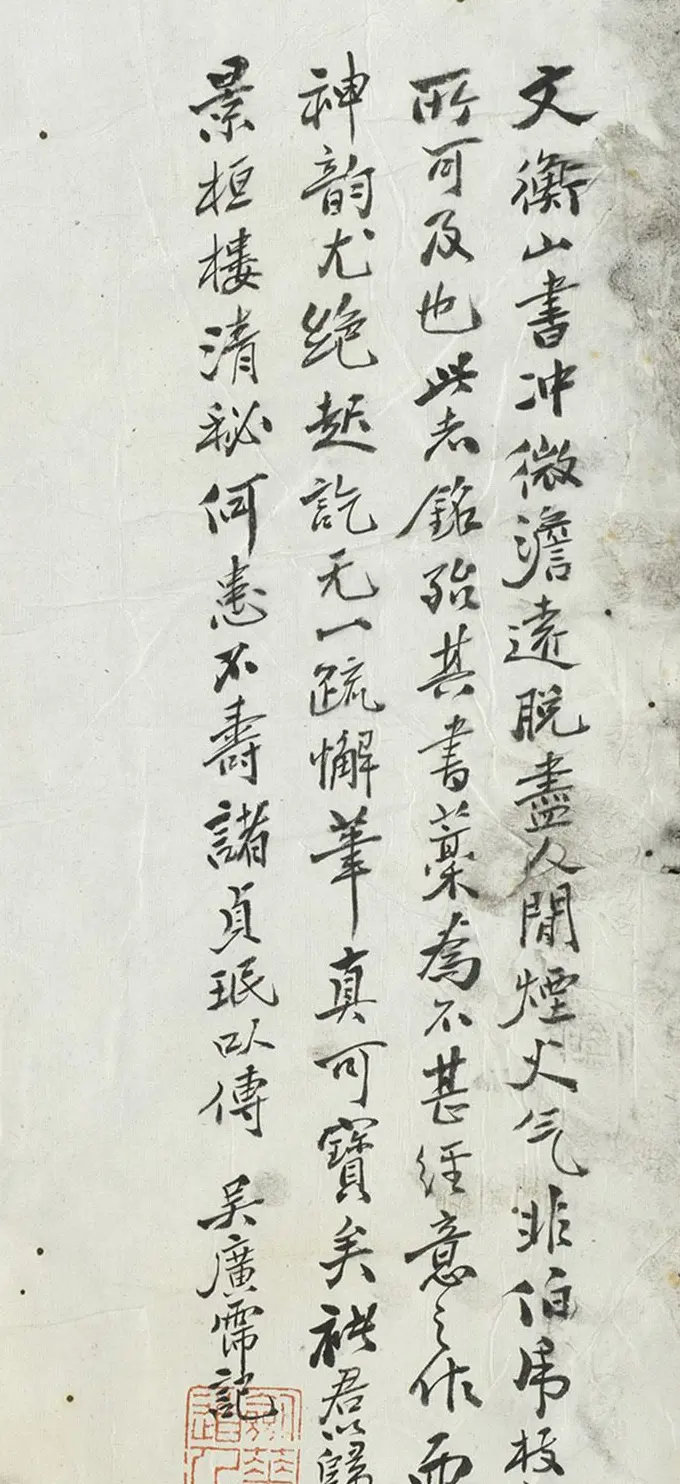 文衡山書冲微澹遠脫盡人閒煙火气非伯虎枝
所可及也此志銘殆其書藁為不甚經意之作而
神韵尤絕起訖无一疏懈筆真可寶矣君以歸
景桓樓清秘何患不壽諸貞珉以傳 吳廣霈記
劍華道人